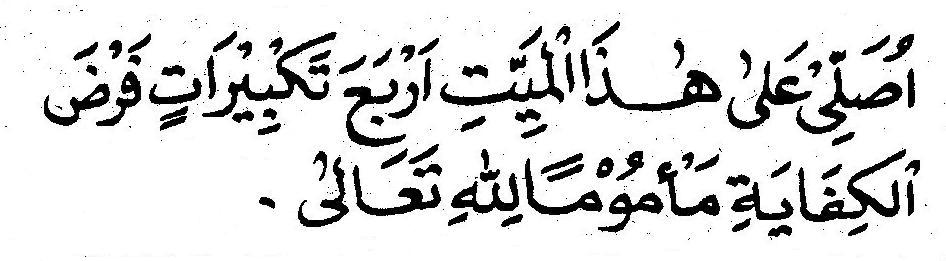 اُصَلِّىْ عَلٰى هٰـذَا الْمَيِّتِ اَرْبَعَ تَكْبِيْرَاتٍ فَرْضَ
الْكِفَايَةِ مَأْمُوْمًا لِلّٰهِ تَعَالٰى .